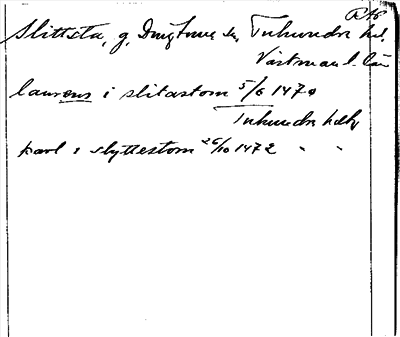 RAP
Slittsta, g, Dingtuna sn, Tuhundra hd.
Västmanl. län
laurens i slitastom 5/6 1470
Tuhundra hdh
karl i slyttestom 26/10 1472 " "